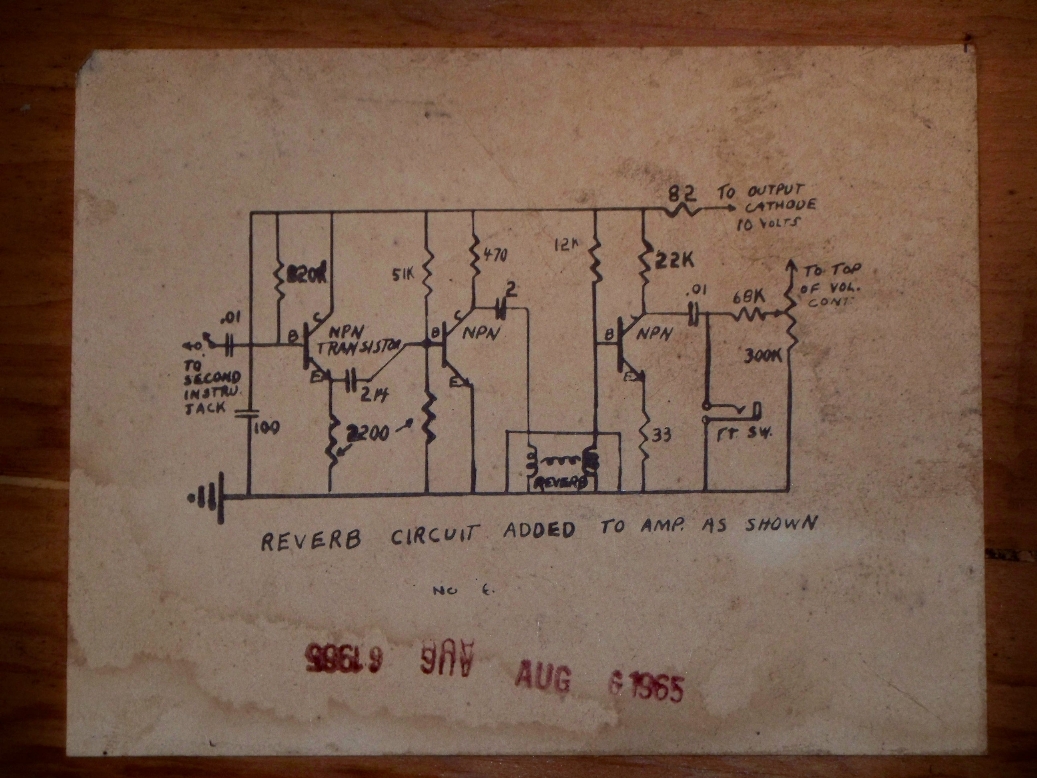 82 TO OUTPUT
CATHODE
10 VOLTS
820K
51K
470
12K
22K
TO TOP
OF VOL.
CONT.
.01
C
NPN
TRANSISTOR
B
E
TO
SECOND
INSTRU.
JACK
100
2.14
2200
B
C
NPN
E
2
B
C
NPN
E
33
.01
68K
300K
FT SW.
REVERB
REVERB CIRCUIT ADDED TO AMP. AS SHOWN
NO 6.
AUG 6 1965
AUG 6 1965